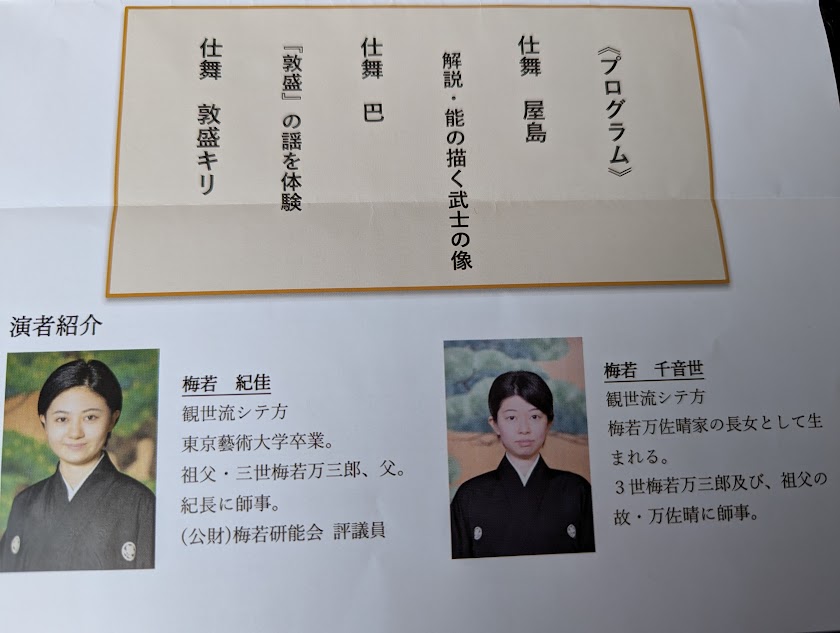 《プログラム》
仕舞 屋島
解説・能の描く武士の像
仕舞 巴
『敦盛』の謡を体験
仕舞 敦盛キリ
演者紹介
梅若 紀佳
観世流シテ方
東京藝術大学卒業。
祖父・三世梅若万三郎、父。
紀長に師事。
(公財)梅若研能会 評議員
梅若 千音世
観世流シテ方
梅若万佐晴家の長女として生
まれる。
３世梅若万三郎及び、祖父の
故・万佐晴に師事。